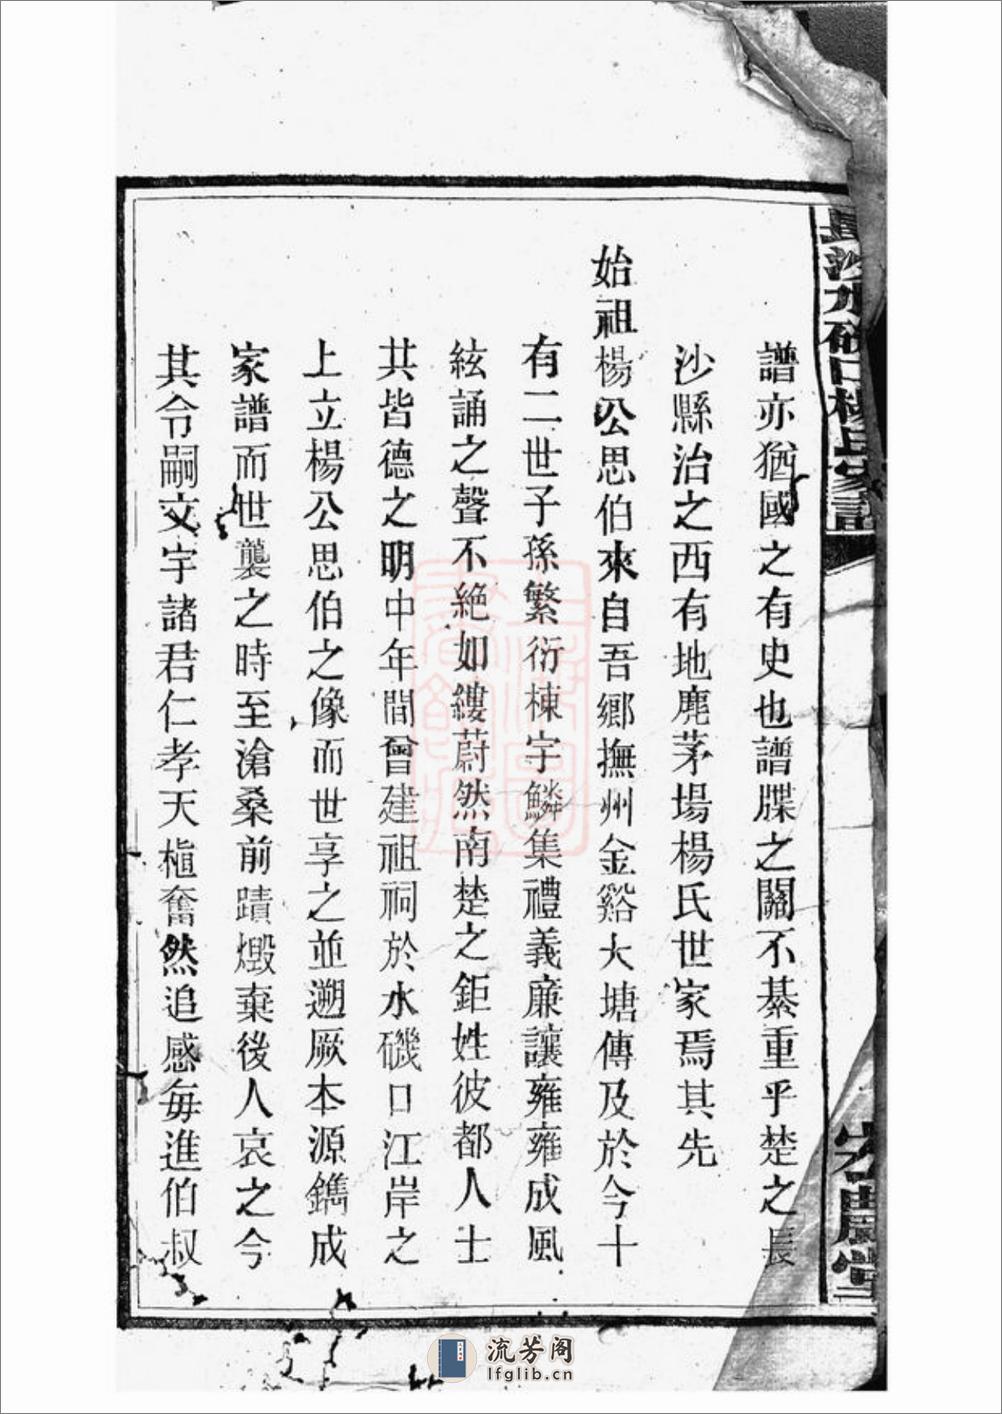 長沙水磯口楊氏家譜
宏農堂
譜亦猶國之有史也譜牒之關不綦重乎楚之長
沙縣治之西有地麂茅場楊氏世家焉其先
始祖楊公思伯來自吾鄉撫州金谿大塘傳及於今十
有二世子孫繁衍棟宇鱗集禮義廉讓雍雍成風
絃誦之聲不絕如縷蔚然南楚之鉅姓彼都人士
共皆德之明中年間曾建祖祠於水磯口江岸之
上立楊公思伯之像而世享之並遡厥本源鐫成
家譜而世襲之時至滄桑前蹟燬棄後人哀之今
其令嗣文宇諸君仁孝天植奮然追感每進伯叔
流芳阁
lfglib.cn